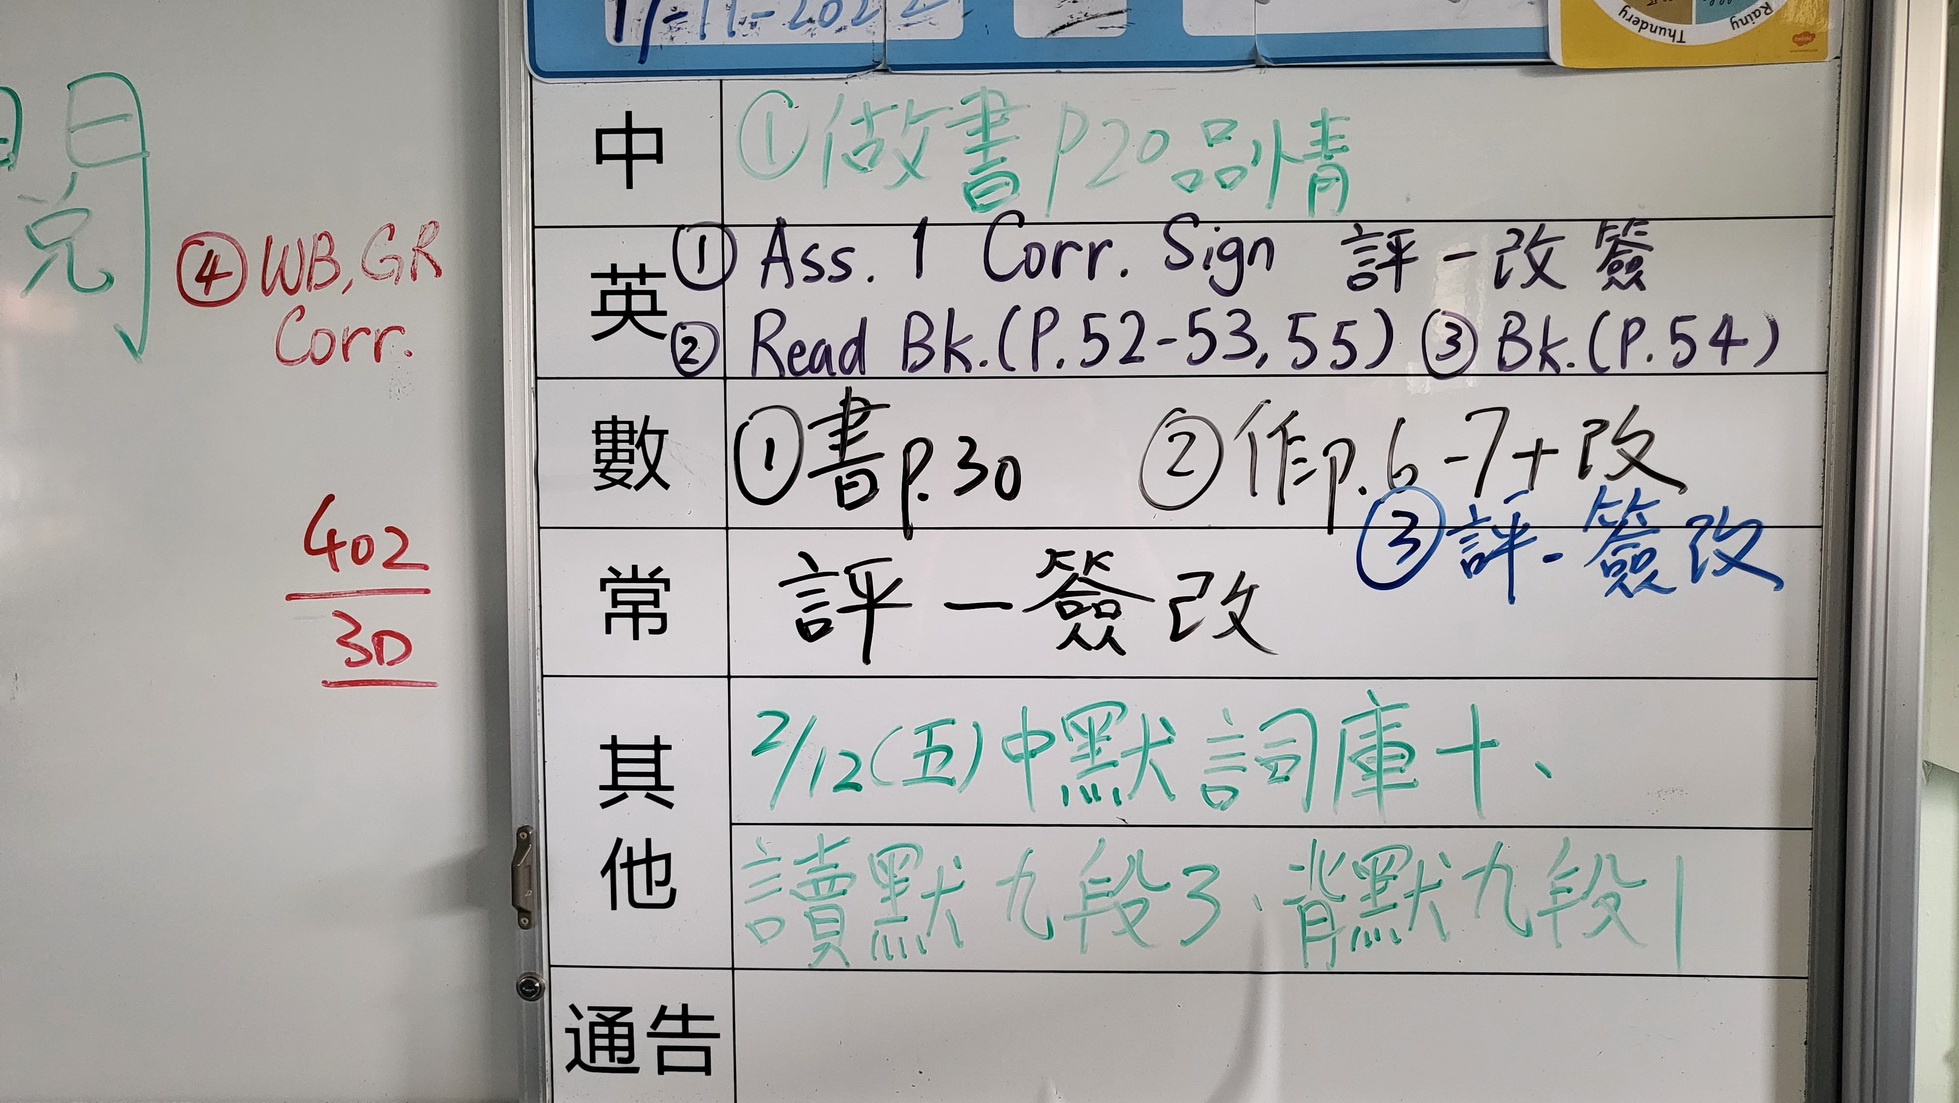 17-11-2022
Thundery
Rainy
中 ①做書P20品情
英 ①Ass. 1 Corr. Sign 評一改簽
②Read Bk.(P.52-53,55) ③Bk.(P.54)
④WB,GR
Corr.
數 ①書p.30 ②作p.6-7+改
③評一簽改
常 評一簽改
402
30
其他 2/12(五)中默詞庫十、
讀默九段3、背默九段1
通告